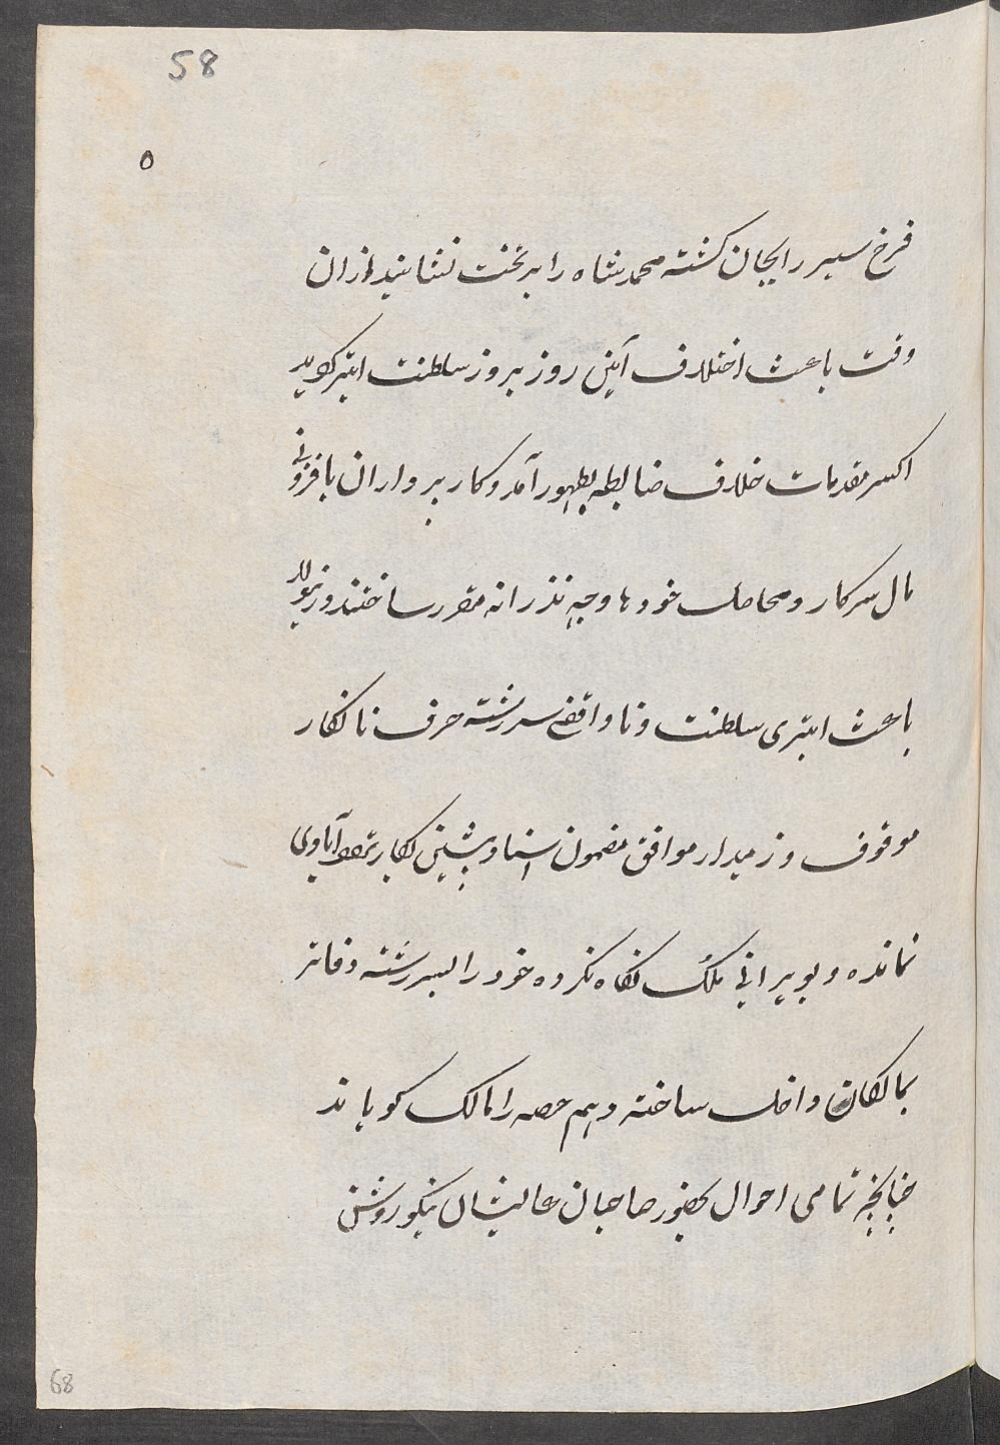 58
٥
فرخ سیر را بجان کشته محمد شاه را بر تخت نشانید ازان
وقت باعث اختلاف آیین روز بروز سلطنت ابتر کردید
اکسر مقدمات خلاف ضابطه بظهور آمد و کار برواران بافزونی
مال سرکار و محاصل خودها وجه نذرانه مقرر ساختند و زمیندار
باعث ابتری سلطنت و ناواقفی سررشته حرف نانکار
موقوف و زمیدار موافق مضمون اسناد پیشین بکار آبادی
نمانده و بویرانی ملک نکاه نکرده خود را بسررشته دفاتر
بمالکان داخل ساخته دهم حصه را مالک کویاند
چنانچه تمامی احوال بحضور صاحبان عالیشان نیکو روشن
68